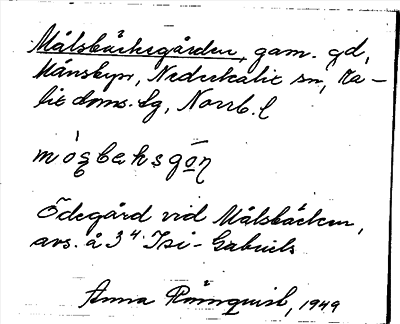 Målsbäcksgården, gam. gd,
Månsbyn, Nederkalix sn, Ka-
lix doms. lg, Norrb. l
Ödegård vid Målsbäcken,
avs. å 3⁴ Isi-Gabriels
Anna Rönnquist, 1949